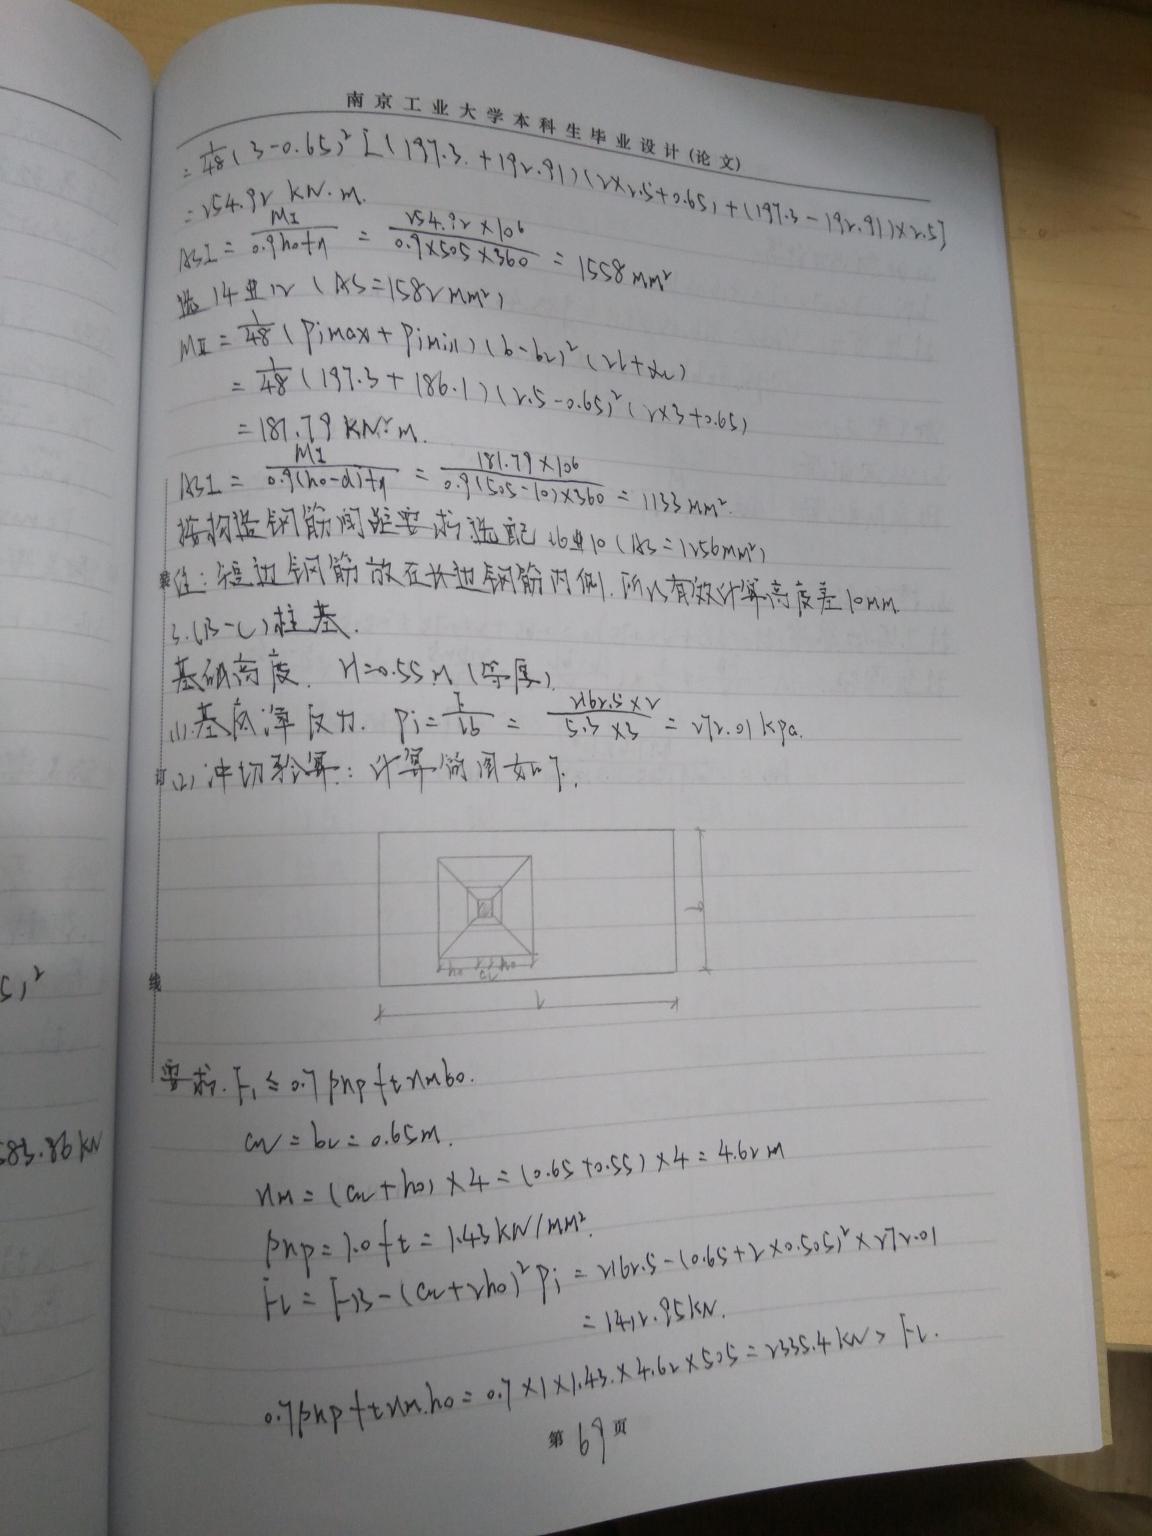 南京工业大学本科生毕业设计(论文)
= 1/48 (3-0.65)² [(197.3+192.91)(2×2.5+0.65)+(197.3-192.91)×2.5]
= 254.92 KN·m.
AsI = MI/(0.9h0fy) = 254.92×10⁶/(0.9×505×360) = 1558mm²
选14⌀12 (AS=1582mm²)
MII = 1/48 (Pjmax+Pjmin)(b-bc)²(2l+ac)
= 1/48 (197.3+186.1)(2.5-0.65)²(2×3+0.65)
= 181.79 KN·m.
AsI = MI/(0.9(h0-d)fy) = 181.79×10⁶/(0.9(505-10)×360) = 1133mm².
按构造钢筋间距要求选配 16⌀10 (As=1256mm²)
注:短边钢筋放在长边钢筋内侧.所以有效计算高度差10mm.
3.(B-C)柱基.
基础高度. H=0.55M (等厚).
(1).基底净反力. Pj = F/lb = 2162.5×2/(5.3×3) = 272.01kpa.
(2)冲切验算:计算简图如下.
h0 ac h0
b
l
要求. Fl ≤ 0.7βhpftumh0.
ac = bc = 0.65m.
um = (ac+h0)×4 = (0.65+0.55)×4 = 4.62m
βhp = 1.0 ft = 1.43KN/mm².
Fl = FB-(ac+2h0)²Pj = 2162.5-(0.65+2×0.505)²×272.01
= 1412.95KN.
0.7βhpftum.h0 = 0.7×1×1.43×4.62×505 = 2335.4KN > FL.
第69页
装
订
线
5)²
583.86KN